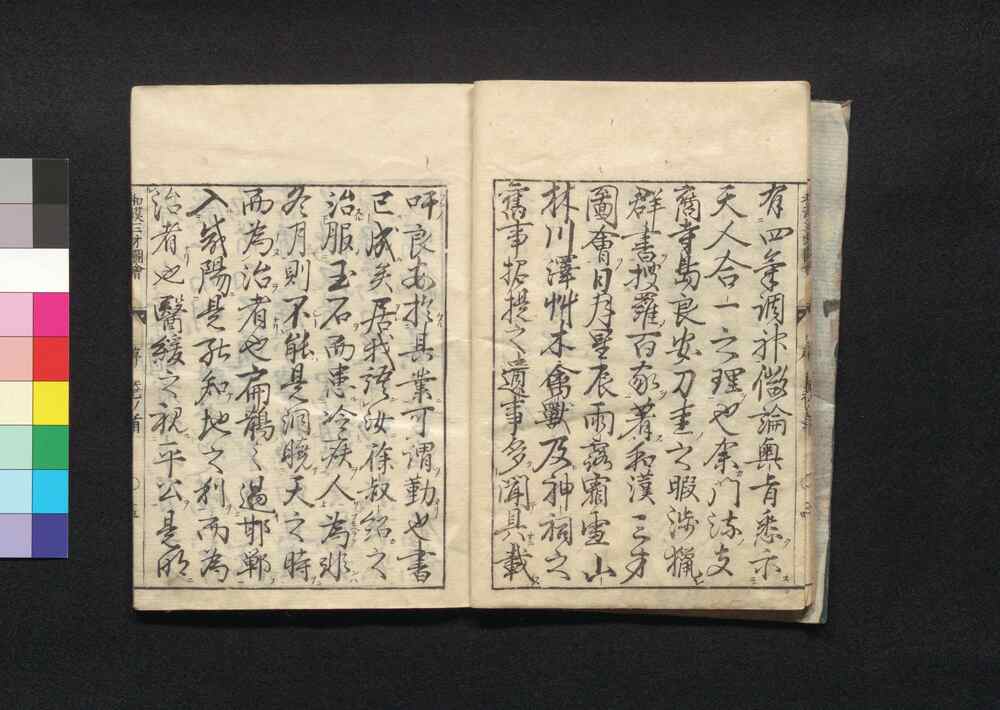 有四氣調神儆論奧旨悉示
天人合一之理也余門流支
裔寺島良安刀圭之暇涉獵
群書搜羅百家著和漢三才
圖會日月星辰雨露霜雪山
林川澤艸木禽獸及神祠之
舊事招提之遺事多聞具載
吁良安於其業可謂勤也書
已成矣居我語汝徐叔紹之
治服玉石而患冷疾人為非
冬月則不能是洞曉天之時
而為治者也扁鵲之過邯鄲
入咸陽是能知地之利而為
治者也醫緩之視平公是明
和漢三才圖會
序